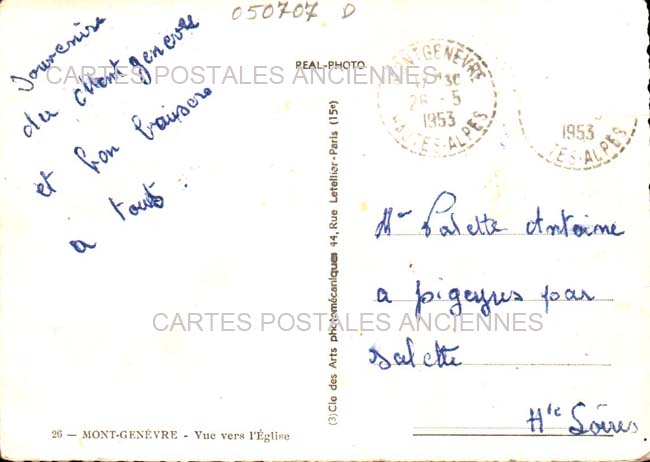 050707 D
Souvenirs
du Mont genevre
et bon baisers
a tous.
REAL-PHOTO
CARTES POSTALES ANCIENNES
MONTGENÈVRE
26 - 5
1953
HAUTES-ALPES
1953
TES-ALPES
(3) Cie des Arts photomécaniques 44, Rue Letellier - Paris (15e)
Mr Palette Antoine
a pigeyres par
CARTES POSTALES ANCIENNES
salette
Hte Loires
26 — MONT-GENÈVRE - Vue vers l'Église